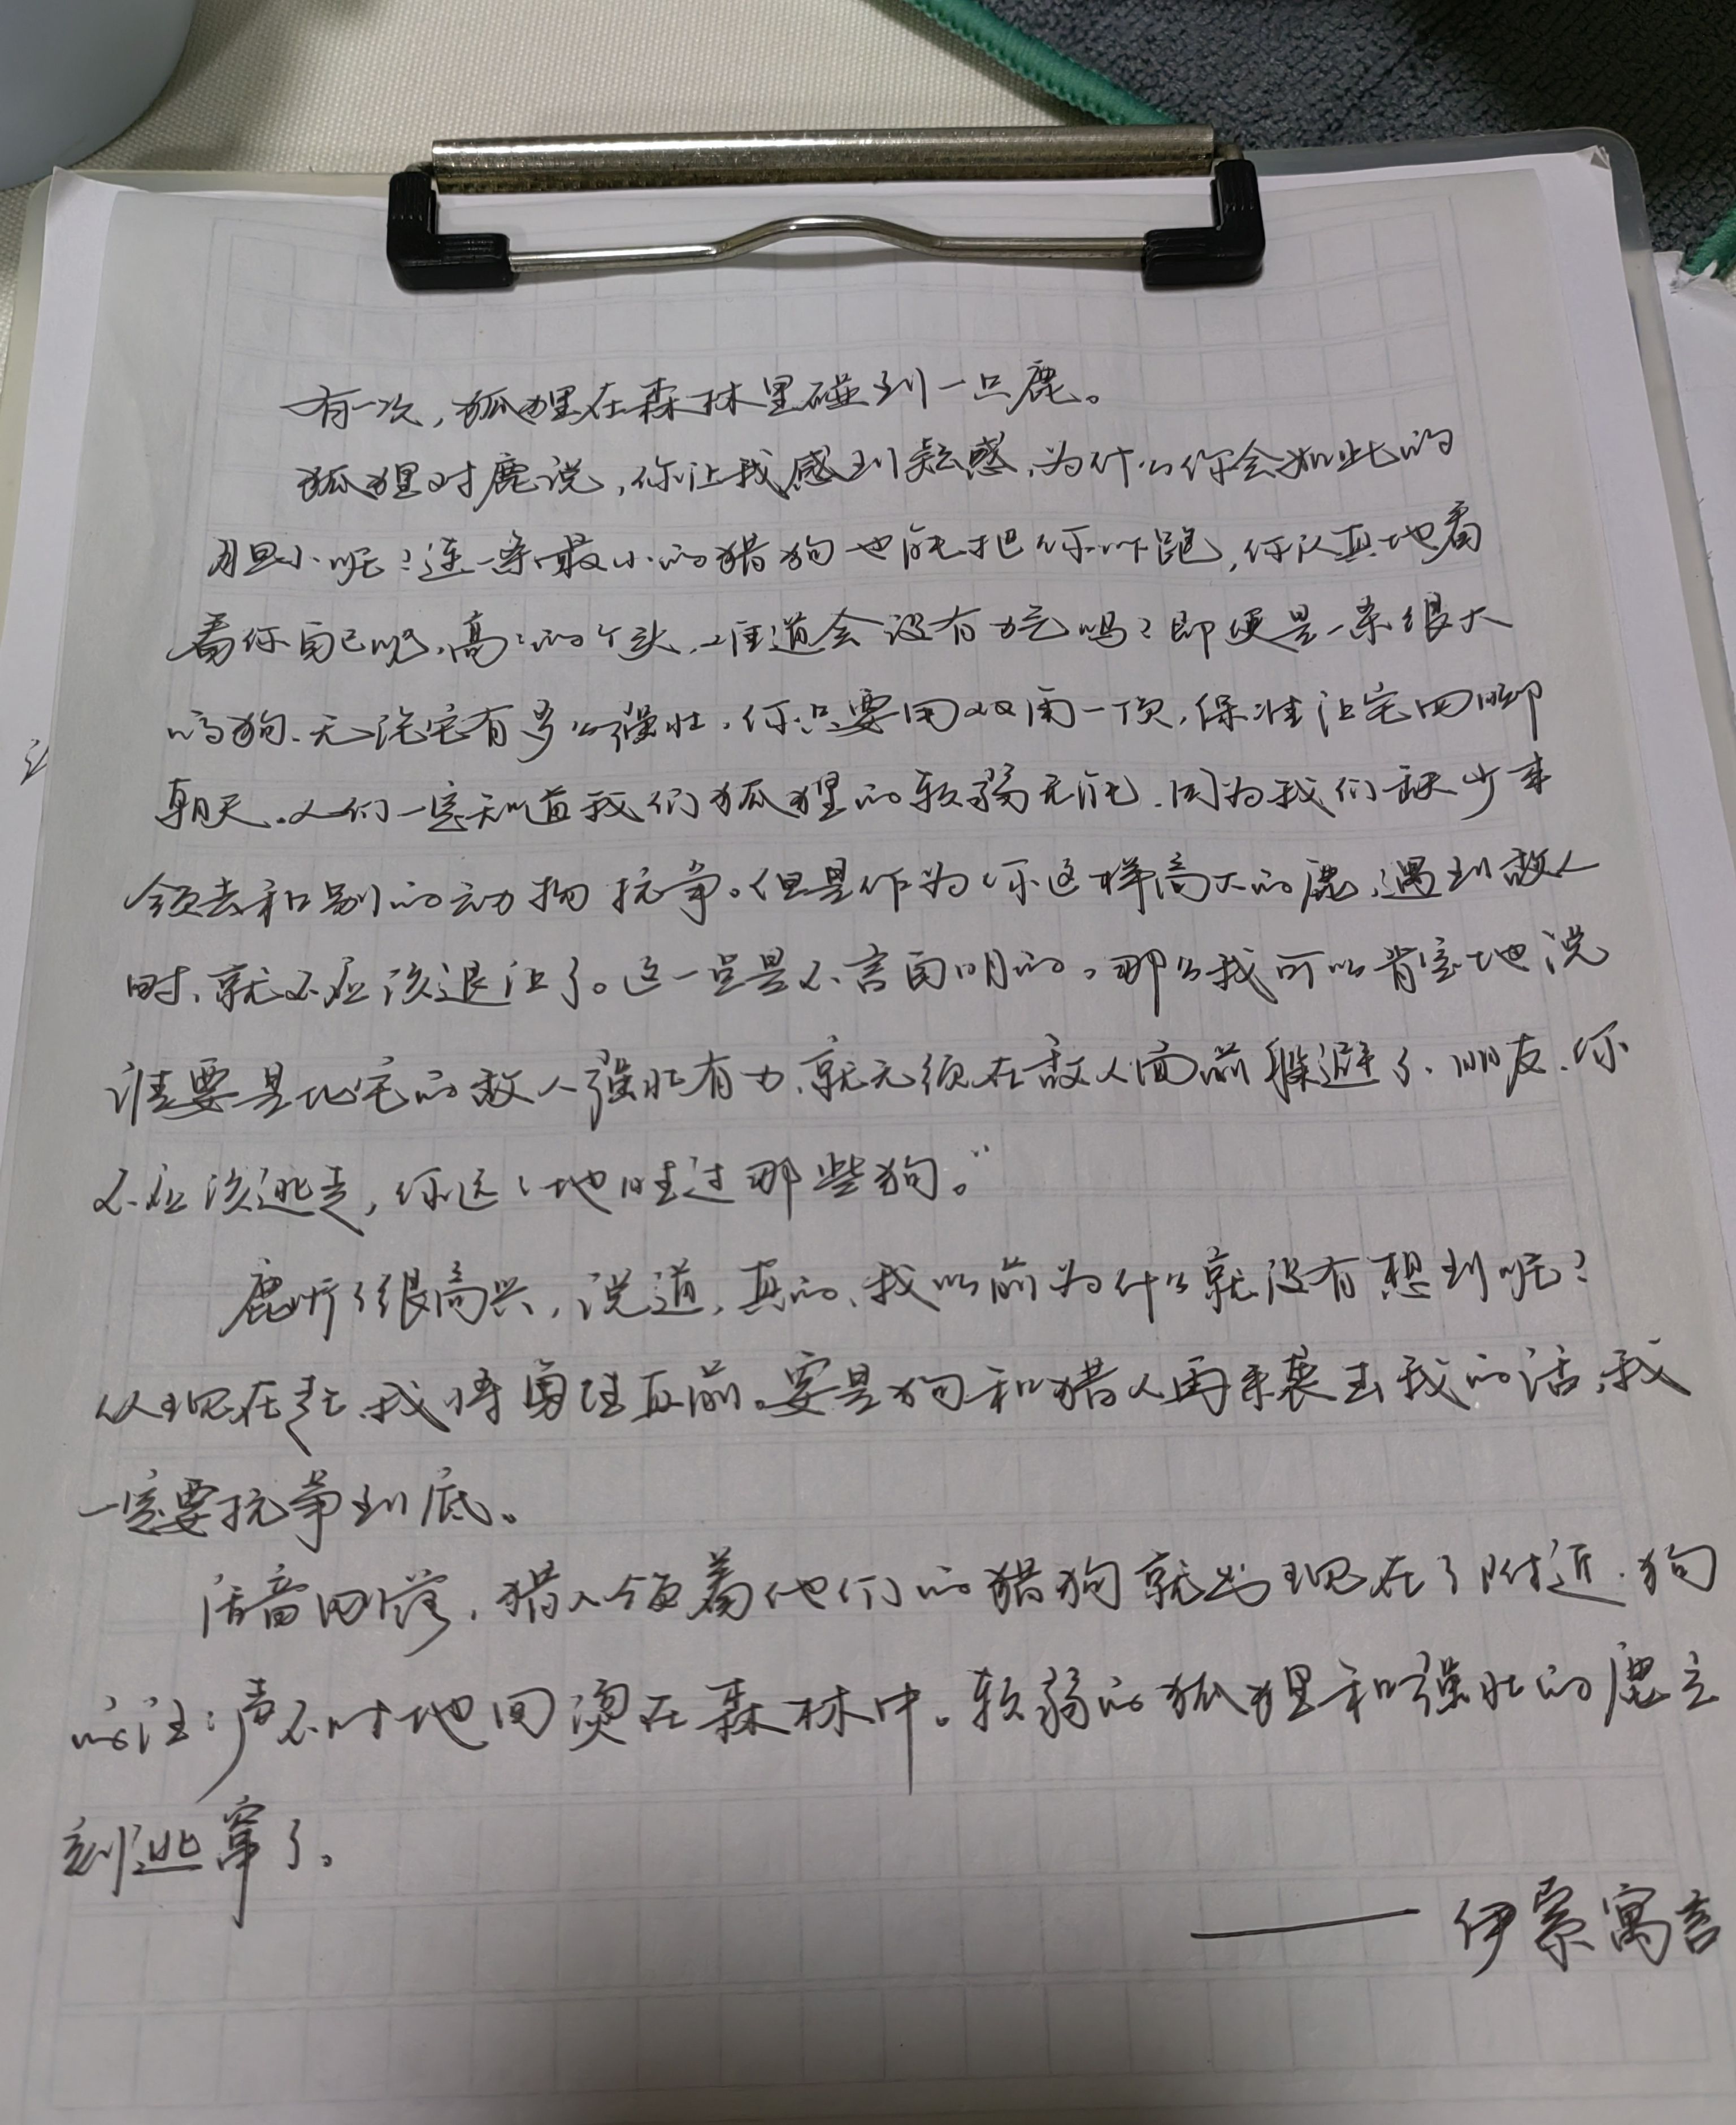 有一次，狐狸在森林里碰到一只鹿。
狐狸对鹿说，你让我感到疑惑，为什么你会如此的
胆小呢？连一条最小的猎狗也能把你吓跑，你认真地看
看你自己吧，高高的个头，难道会没有力气吗？即便是一条很大
的狗、无论它有多么强壮，你只要用双角一顶，保准让它四脚
朝天。人们一定知道我们狐狸的软弱无能，因为我们缺少本
领去和别的动物抗争。但是作为你这样高大的鹿，遇到敌人
时、就不应该退让了。这一点是不言自明的。那么我可以肯定地说
谁要是比它的敌人强壮有力、就无须在敌人面前躲避了、朋友、你
不应该逃走，你远远地胜过那些狗。”
鹿听了很高兴，说道，真的、我以前为什么就没有想到呢？
从现在起、我将勇往直前。要是狗和猎人再来袭击我的话、我
一定要抗争到底。
话音刚落，猎人领着他们的猎狗就出现在了附近、狗
的汪汪声不时地回荡在森林中。软弱的狐狸和强壮的鹿立
刻逃窜了。
—— 伊索寓言